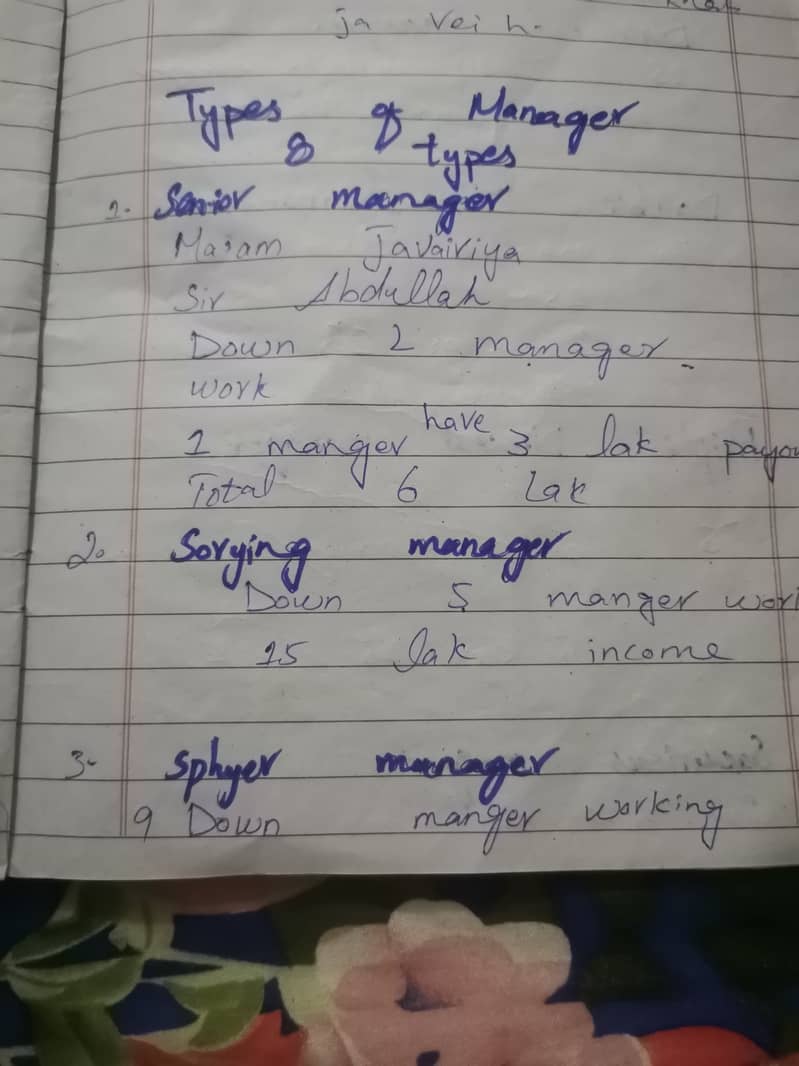 ja veih.
Types of Manager
8 types
1. Senior manager
Masam Javairiya
Sir Abdullah
Down 2 manager
work
1 manger have 3 lak payou
Total 6 Lak
2. Sorying manager
Down 5 manger wor
15 lak income
3- Sphyer manager
9 Down manger working